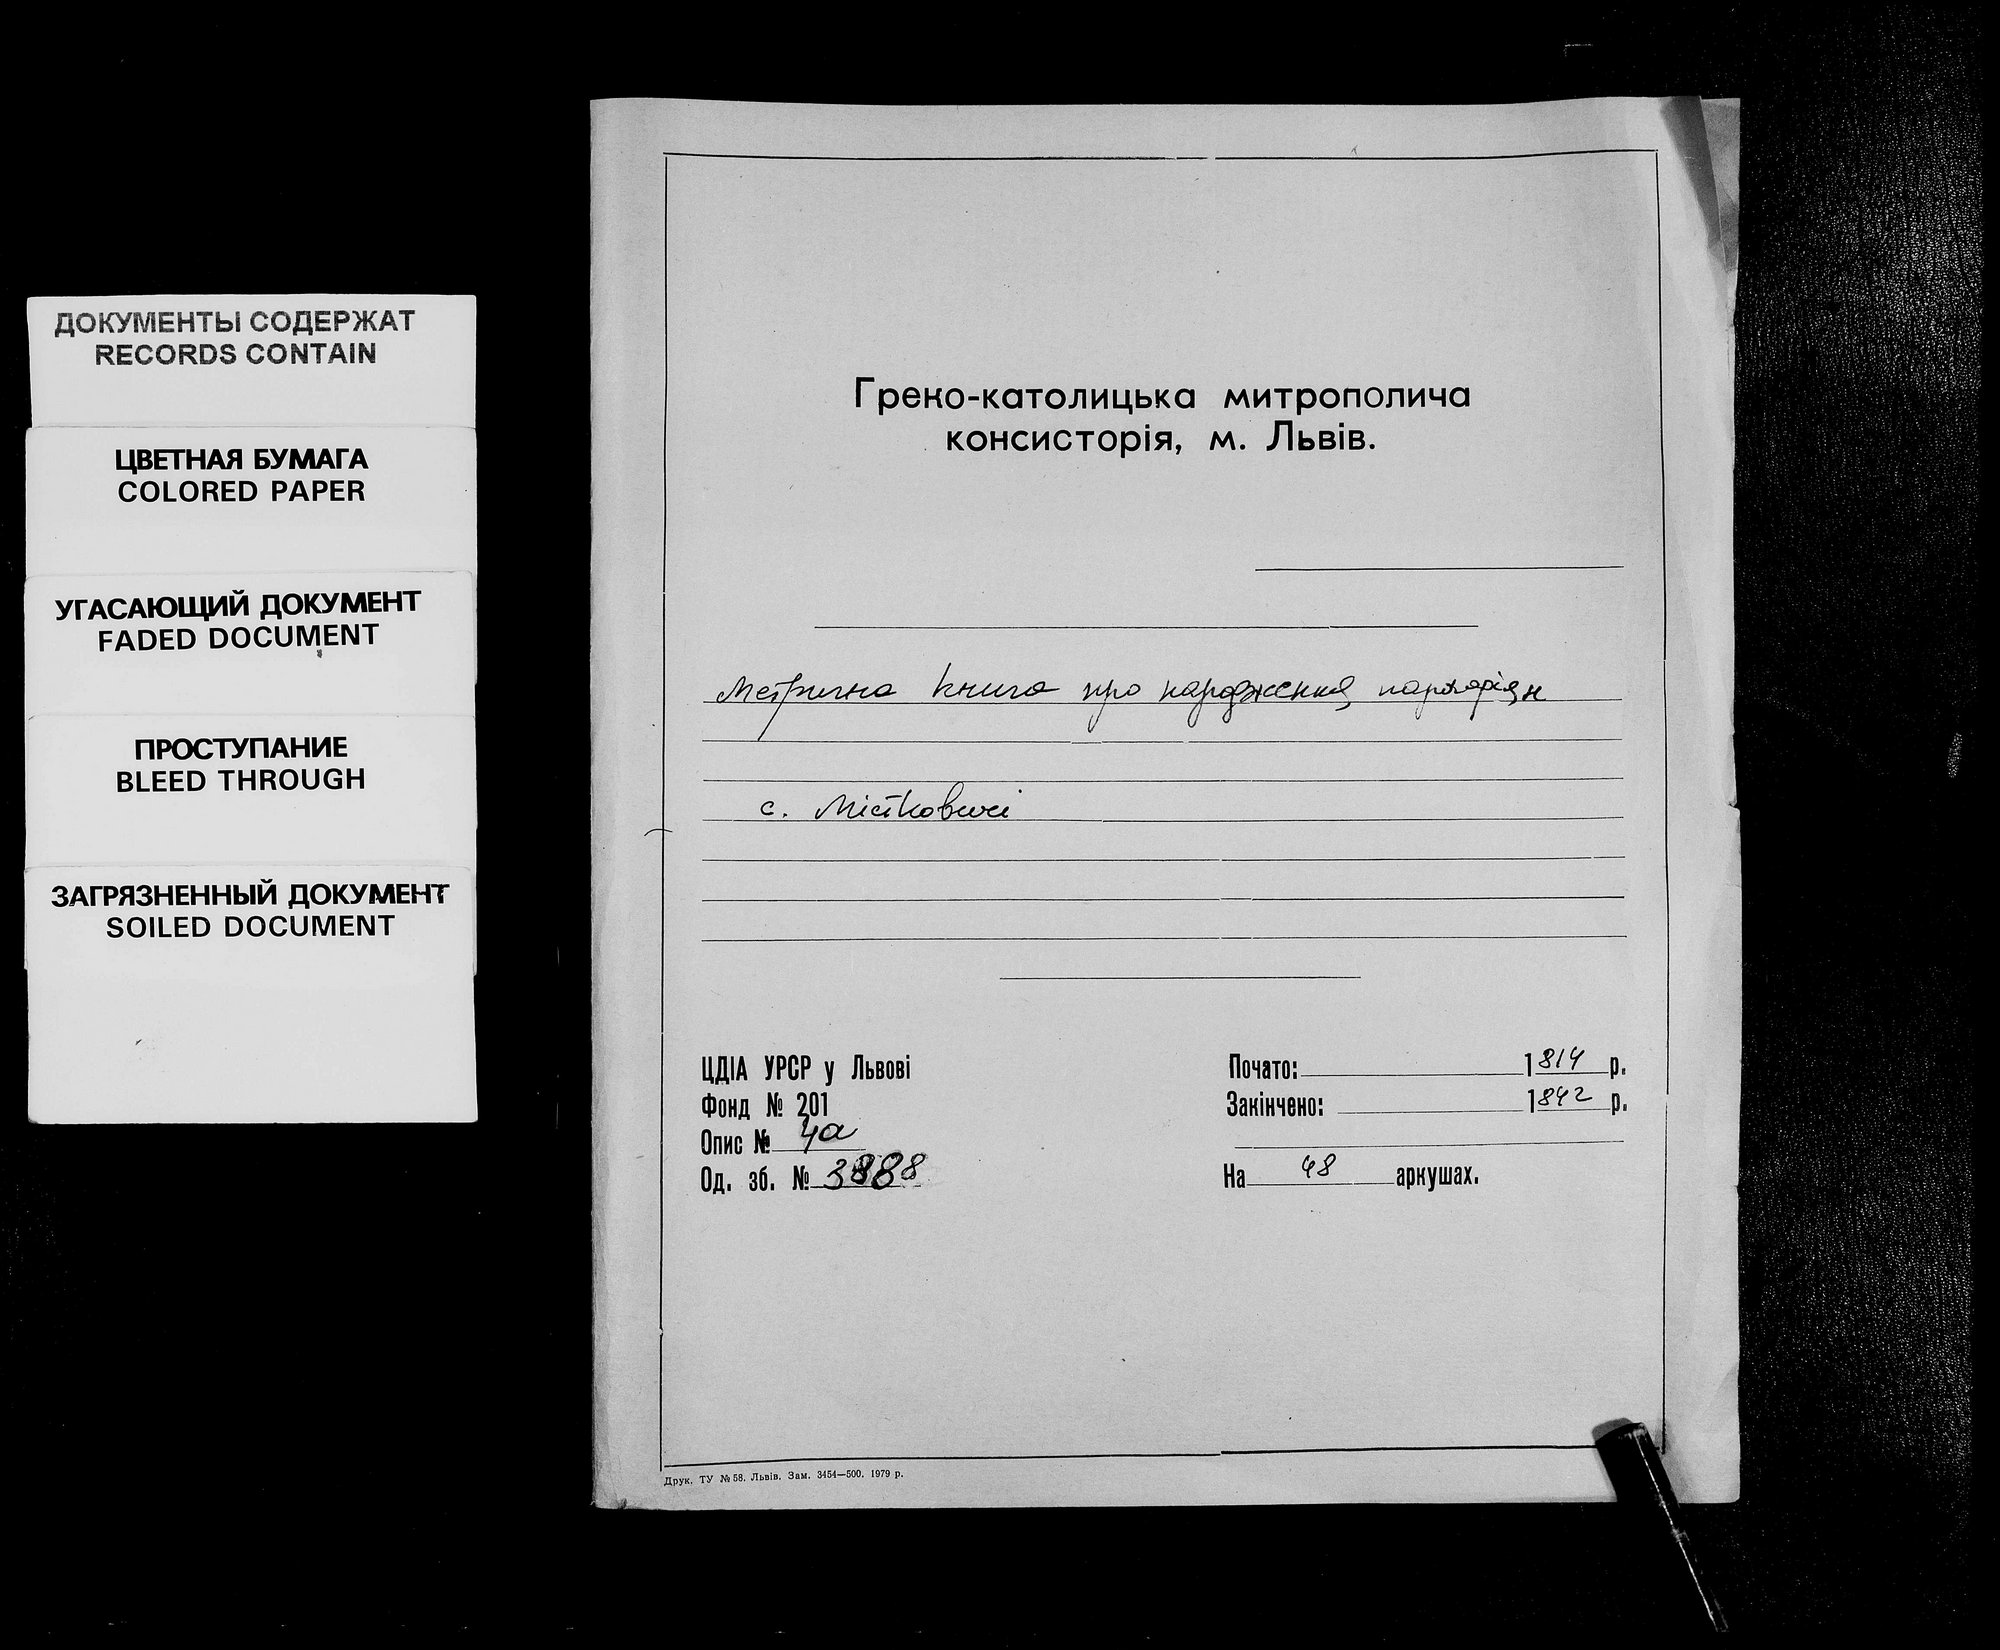 ДОКУМЕНТЫ СОДЕРЖАТ
RECORDS CONTAIN
ЦВЕТНАЯ БУМАГА
COLORED PAPER
УГАСАЮЩИЙ ДОКУМЕНТ
FADED DOCUMENT
ПРОСТУПАНИЕ
BLEED THROUGH
ЗАГРЯЗНЕННЫЙ ДОКУМЕНТ
SOILED DOCUMENT
Греко-католицька митрополича
консисторія, м. Львів.
Метрична книга про народження парафіян
с. Містковичі
ЦДІА УРСР у Львові
Фонд № 201
Опис № 4а
Од. зб. № 3888
Почато: 1814 р.
Закінчено: 1842 р.
На 48 аркушах.
Друк. ТУ № 58. Львів. Зам. 3454—500. 1979 р.